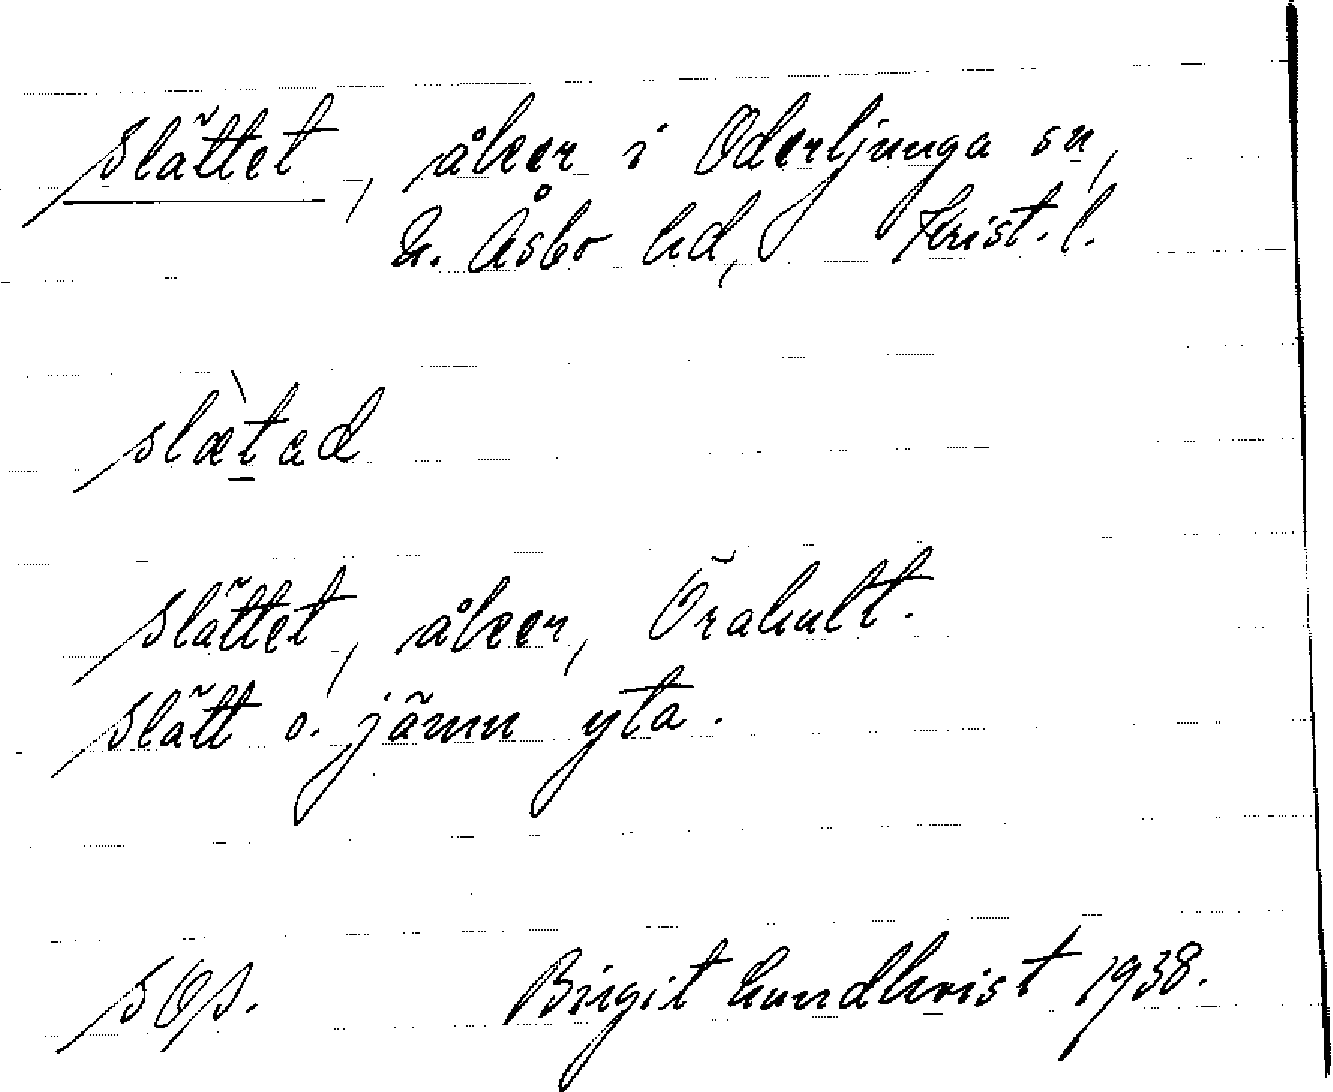 Slättet, åker i Oderljunga sn,
N. Åsbo hd, Krist. l.
slæ̀tad
Slättet, åker, Örahult.
Slätt o. jämn yta.
SOA.
Birgit Lundkvist 1938.